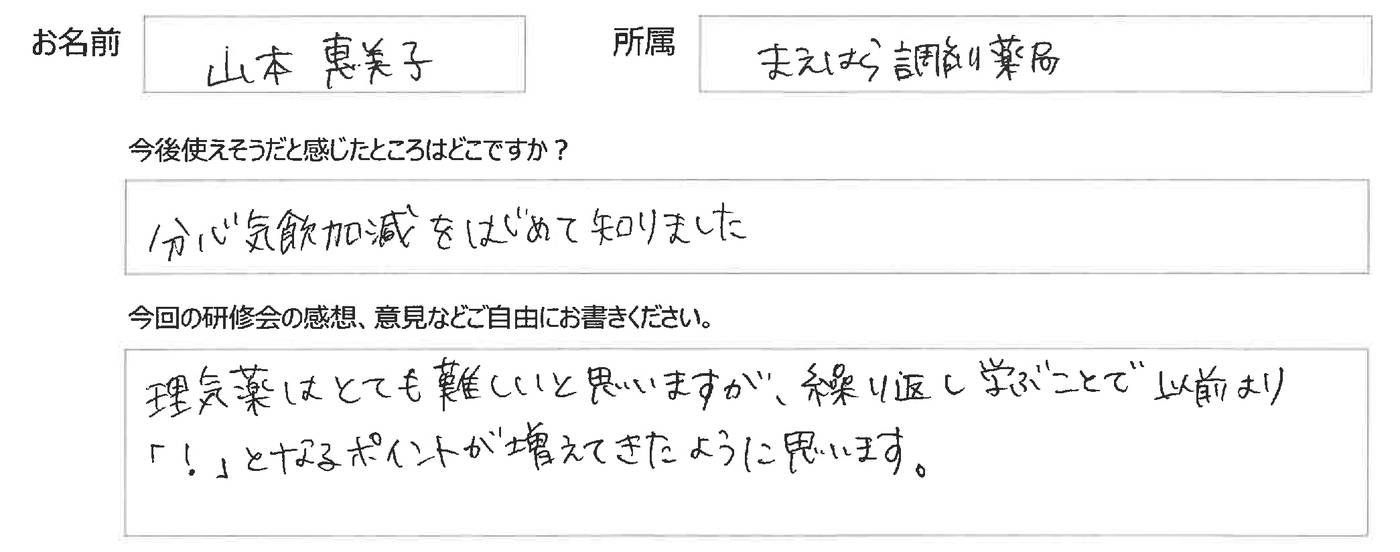 お名前 山本 恵美子 所属 まえはら調剤薬局
今後使えそうだと感じたところはどこですか？
分心気飲加減をはじめて知りました
今回の研修会の感想、意見などご自由にお書きください。
理気薬はとても難しいと思いますが、繰り返し学ぶことで以前より
「！」となるポイントが増えてきたように思います。